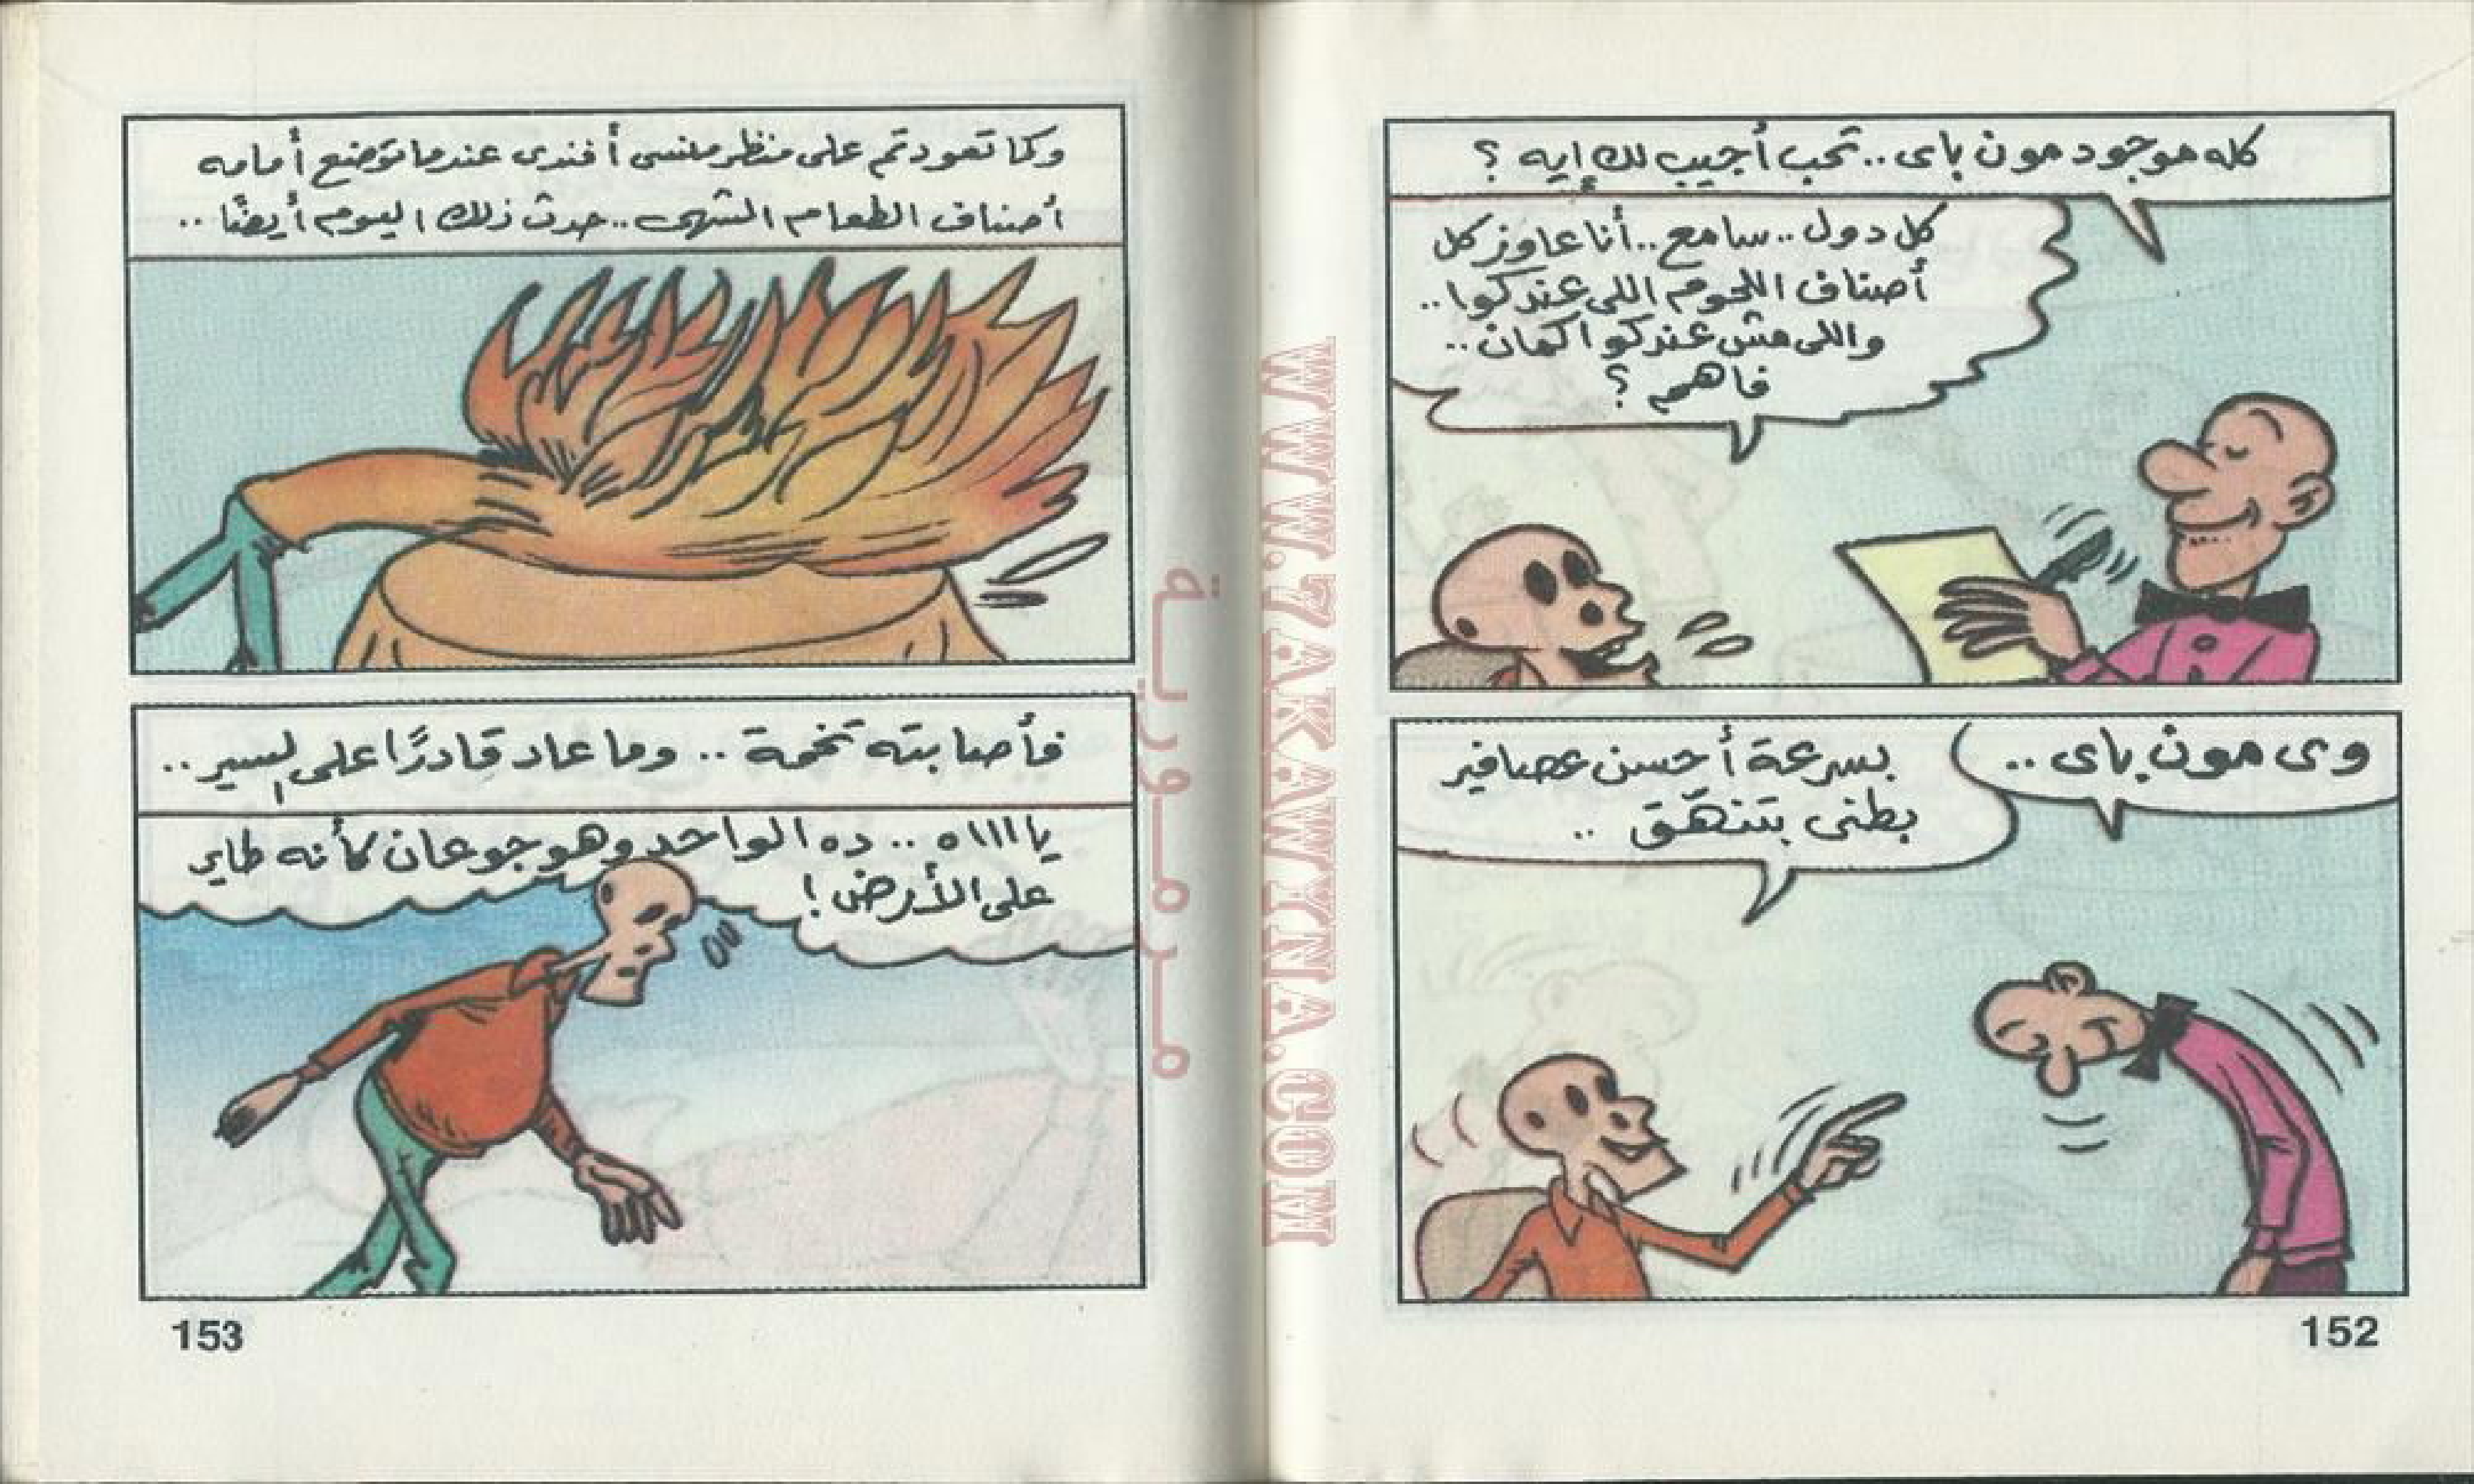 كله موجود مون باى .. تحب أجيب لك إيه ؟
كل دول .. سامع .. أنا عاوز كل
أصناف اللحوم اللى عندكوا ..
واللى مش عندكوا كمان ..
فاهم ؟
وى مون باى ..
بسرعة أحسن عصافير
بطنى بتنهّق ..
152
وكما تعودتم على منظر منسى أفندى عندما توضع أمامه
أصناف الطعام الشهى .. حدث ذلك اليوم أيضًا ..
فأصابته تخمة .. وما عاد قادرًا على السير ..
يااااه .. ده الواحد وهو جوعان كأنه طاير
على الأرض !
153
WWW.7AKAWYNA.COM
مرمورية